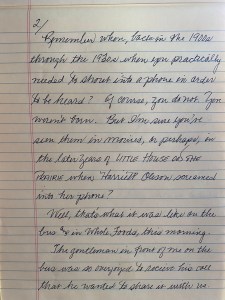 2/
Remember when, back in the 1900s
through the 1920s when you practically
needed to shout into a phone in order
to be heard? Of course, you do not. You
weren't born. But I'm sure you've
seen them in movies, or perhaps, in
the later years of LITTLE HOUSE ON THE
PRAIRIE when Harriett Oleson screamed
into her phone?
Well, thats what it was like on the
bus & in Whole Foods, this morning.
The gentleman in front of me on the
bus was so overjoyed to receive his call
that he wanted to share it with us